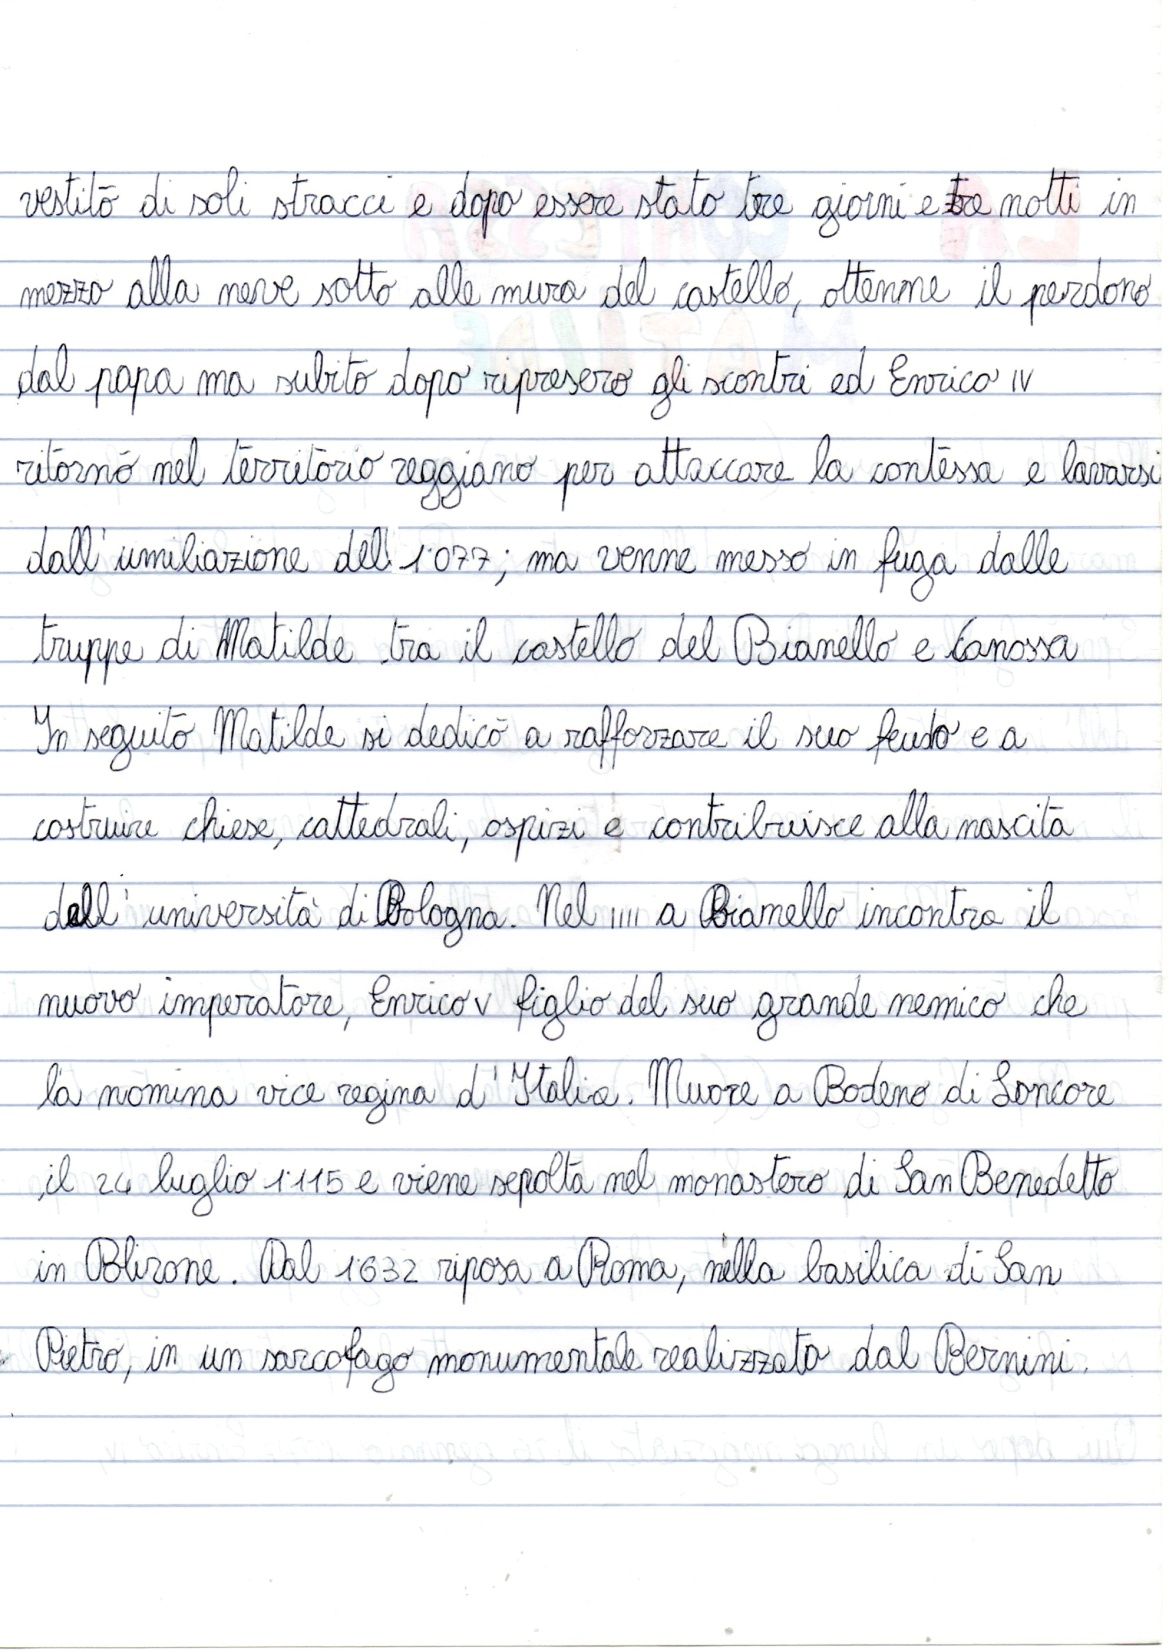 vestito di soli stracci e dopo essere stato tre giorni e tre notti in
mezzo alla neve sotto alle mura del castello, ottenne il perdono
dal papa ma subito dopo ripresero gli scontri ed Enrico IV
ritornò nel territorio reggiano per attaccare la contessa e lavarsi
dall'umiliazione dell'1077; ma venne messo in fuga dalle
truppe di Matilde tra il castello del Bianello e Canossa
In seguito Matilde si dedicò a rafforzare il suo feudo e a
costruire chiese, cattedrali, ospizi e contribuisce alla nascita
dell'università di Bologna. Nel 1111 a Bianello incontra il
nuovo imperatore, Enrico V figlio del suo grande nemico che
la nomina vice regina d'Italia. Muore a Bodeno di Loncore
il 24 luglio 1115 e viene sepolta nel monastero di San Benedetto
in Blirone. Dal 1632 riposa a Roma, nella basilica di San
Pietro, in un sarcofago monumentale realizzato dal Bernini.